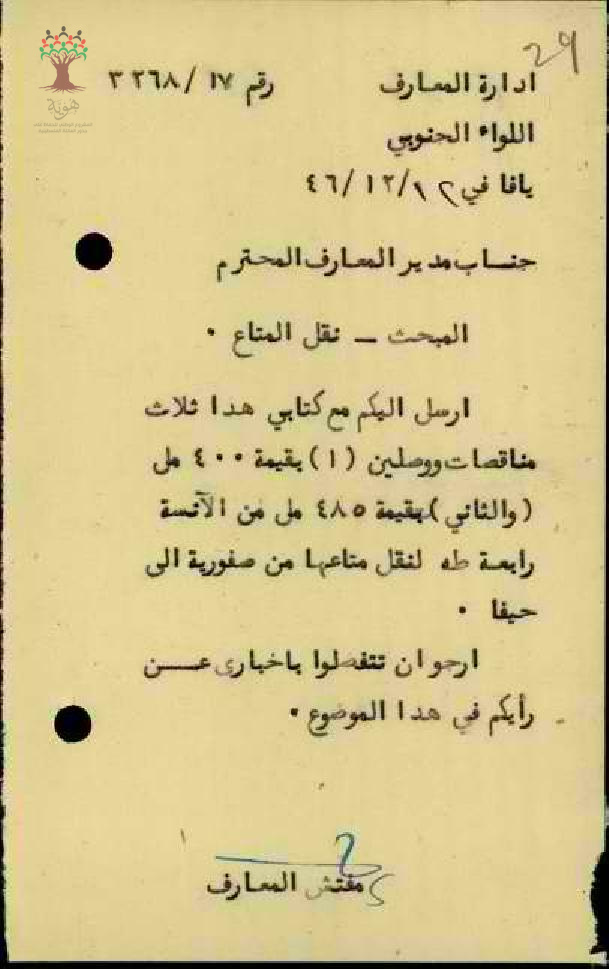 29
ادارة المعارف رقم ١٧/ ٣٢٦٨
اللواء الجنوبي
يافا في ١٢/ ٤٦
جناب مدير المعارف المحترم
المبحث — نقل المتاع ٠
ارسل اليكم مع كتابي هذا ثلاث
مناقصات ووصلين (١) بقيمة ٤٠٠ مل
(والثاني) بقيمة ٤٨٥ مل من الآنسة
رابعة طه لنقل متاعها من صفورية الى
حيفا ٠
ارجو ان تتفضلوا باخباري عن
رأيكم في هذا الموضوع ٠
مفتش المعارف
هوية